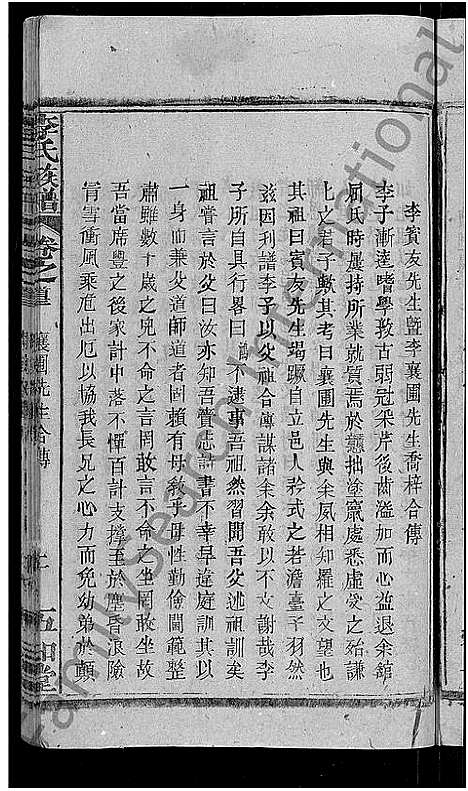 李賓友先生曁李襄圃先生喬梓合傳
李子漸逵嗜學敦古弱冠采芹後齒溢加而心益退余舘
屈氏時屢持所業就質焉於蕪拙塗竄處悉虛受之殆謙
七之君子歟其考曰襄圃先生與余夙相知羅之文望也
其祖曰賓友先生竭蹶自立邑人矜式之若澹臺子羽然
兹因利譜李子以父祖合傳謀諸余余敢以不文謝哉李
子所自具行畧曰 不逮事吾祖然習聞吾父述祖訓矣
祖嘗言於父曰汝亦知吾賫志讀書不幸早違庭訓其以
一身而兼父道師道者固賴有母教乎母性勤儉閫範整
肅雖數十歲之兒不命之言罔敢言不命之坐罔敢坐故
吾當席豐之後家計中落不憚百計支撐至於塵昏浪險
冐雪衝風乘危出厄以協我長兄之心力而免幼弟於顛
李氏族譜 卷之首 襄圃先生合傳